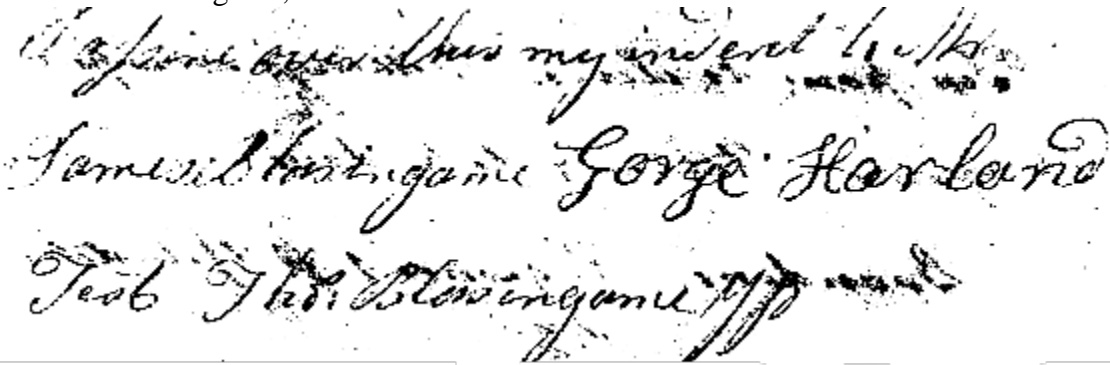 I assine over this my indent to the
James Blasingame Gorge Harland
Test Thos. Blasingame JP